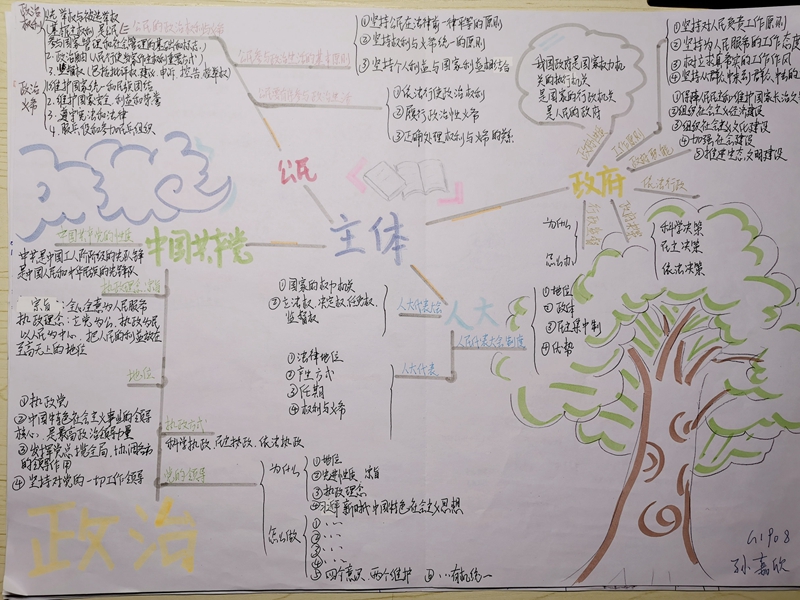 政治权利
①选举权与被选举权
(基本政治权利,是公民
参与国家管理和社会管理的基础和标志)
2.政治自由
3.监督权(包括批评权 建议 申诉 控告 检举权)
政治义务
1.维护国家统一和民族团结
2.维护国家安全、利益和荣誉
3.遵守宪法和法律
4.服兵役和参加民兵组织
①坚持公民在法律面前一律平等的原则
②坚持权利与义务统一的原则
③坚持个人利益与国家利益相结合
①依法行使政治权利
②履行政治性义务
③正确处理权利与义务的关系
公民
我国政府是国家权力机
关的执行机关
是国家的行政机关
是人民的政府
①坚持对人民负责工作原则
②坚持为人民服务的工作态度
③树立求真务实的工作作风
④坚持从群众中来到群众中去的
①保障人民民主和维护国家长治久安
②组织社会主义经济建设
③组织社会主义文化建设
④加强社会建设
⑤推进生态文明建设
政府
依法行政
为什么
怎么办
科学决策
民主决策
依法决策
主体
中国共产党
中国共产党的性质
中共是中国工人阶级的先锋队
是中国人民和中华民族的先锋队
执政理念、宗旨
宗旨:全心全意为人民服务
执政理念:立党为公、执政为民
以人民为中心,把人民的利益放在
至高无上的地位
地位
①执政党
②中国特色社会主义事业的领导
核心,是最高政治领导力量
③发挥党总揽全局、协调各方
的领导作用
④坚持对党的一切工作领导
执政方式
科学执政、民主执政、依法执政
党的领导
为什么
①地位
②党的性质 宗旨
③执政理念
怎么做
①····
②····
③····
④····
⑤四个意识、两个维护
⑥···有机统一
人大
人大代表大会
①国家的权力机关
②立法权、决定权、任免权、
监督权
人大代表
①法律地位
②产生方式
③任期
④权利与义务
人民代表大会制度
①地位
②政体
③民主集中制
④优势
政治
G1908
孙嘉欣